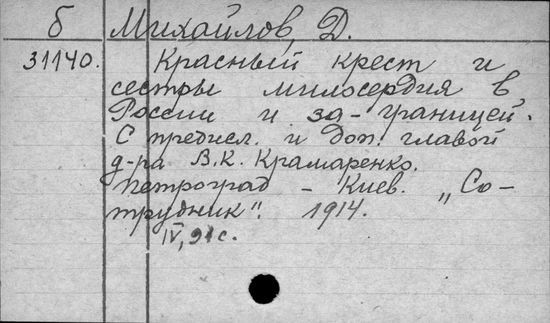 б Михайлов, Д.
31140. Красный крест и
сестры милосердия в
России и за-границей.
С предисл. и доп. главой
д-ра В.К. Крамаренко.
Петроград - Киев. „Со-
трудник". 1914.
IV, 91 с.